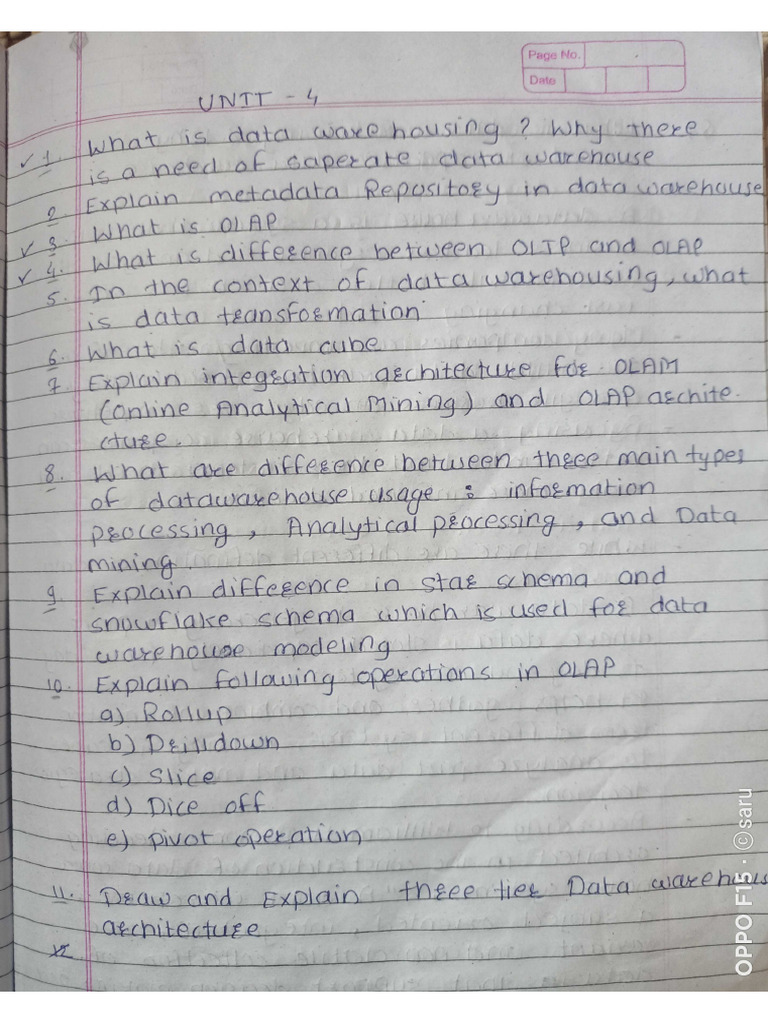 Page No.
Date
UNIT - 4
✓ 1. What is data warehousing ? Why there
is a need of saperate data warehouse
2. Explain metadata Repository in data warehouse
✓ 3. What is OLAP
✓ 4. What is difference between OLTP and OLAP
5. In the context of data warehousing, what
is data transformation
6. What is data cube
7. Explain integration architecture for OLAM
(Online Analytical Mining) and OLAP archite.
cture.
8. What are difference between three main types
of datawarehouse usage : information
processing, Analytical processing, and Data
mining
9. Explain difference in star schema and
snowflake schema which is used for data
warehouse modeling
10. Explain following operations in OLAP
a) Rollup
b) Drilldown
c) Slice
d) Dice off
e) pivot operation
11. Draw and Explain three tier Data warehous
architecture
OPPO F15 · © saru